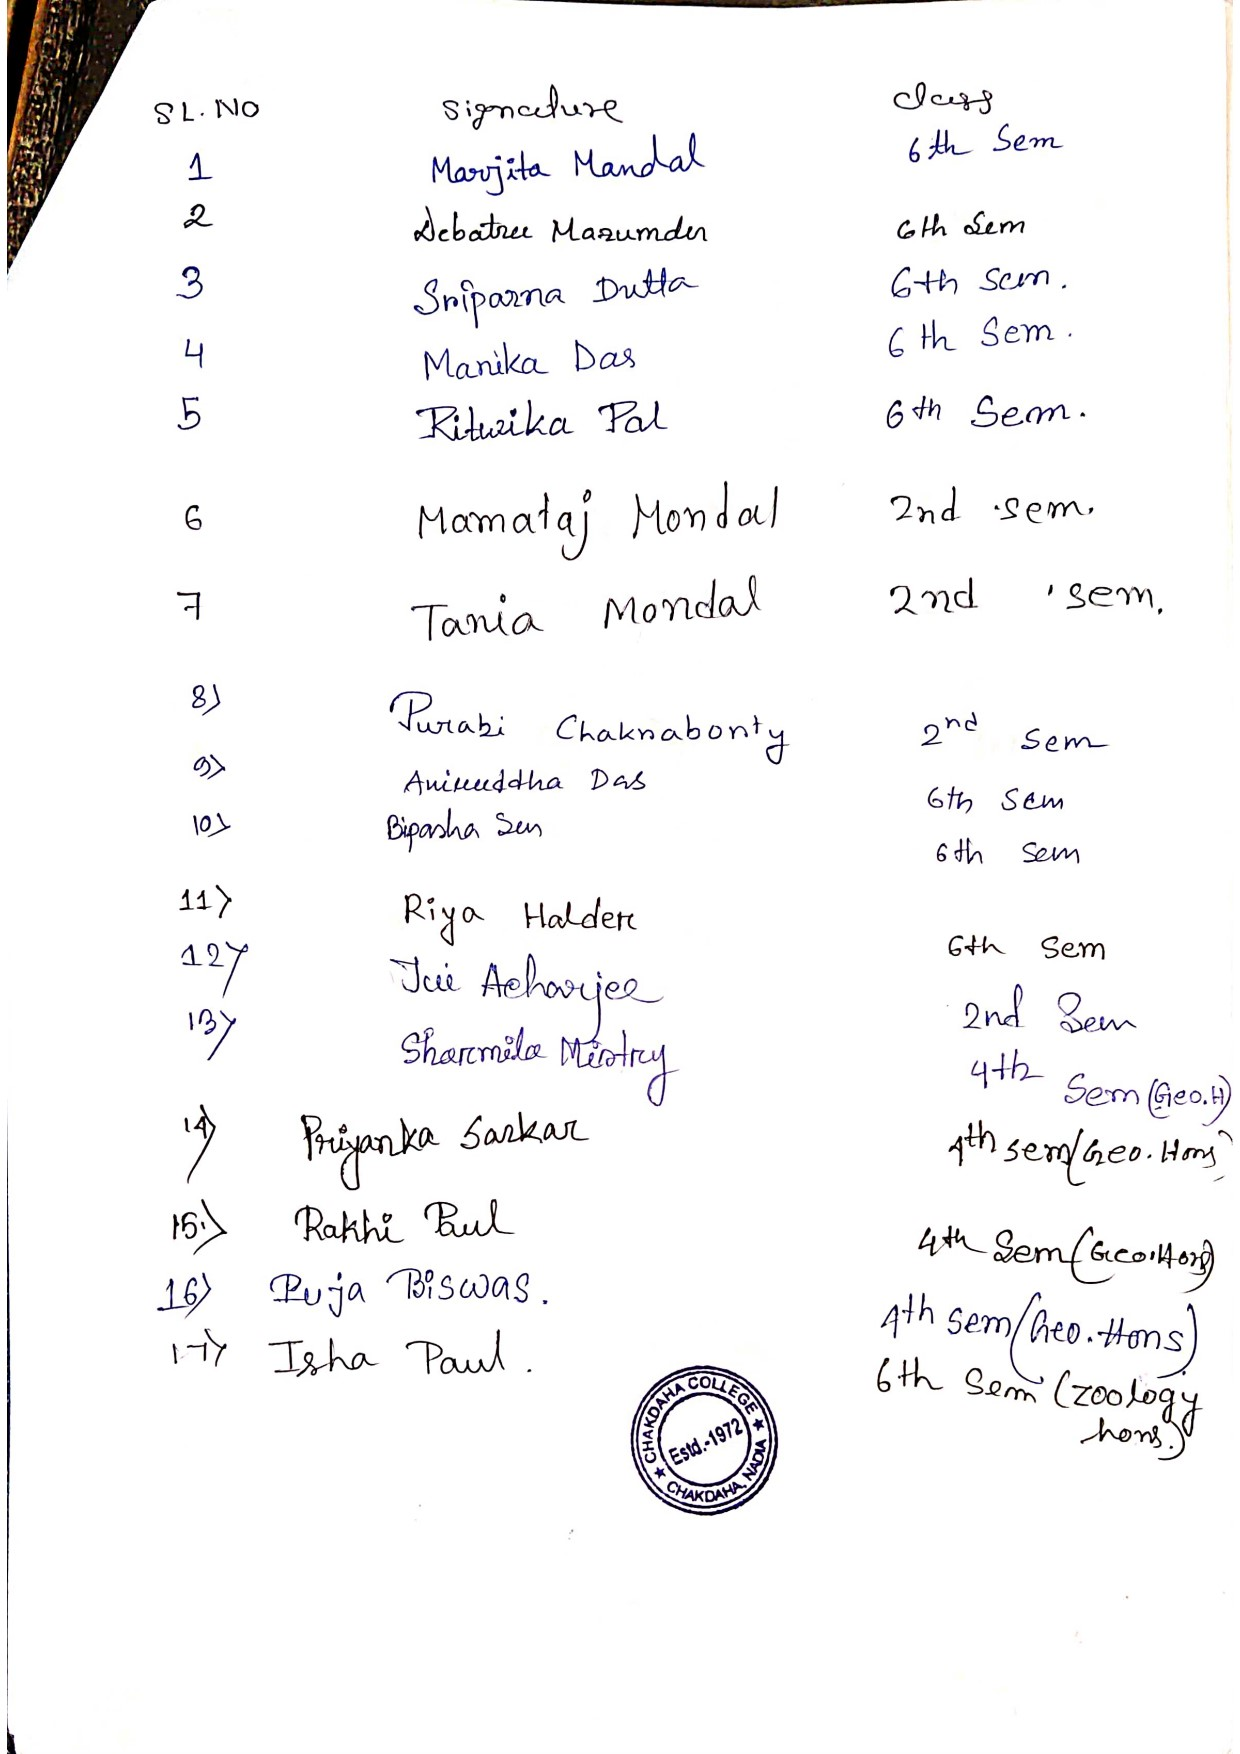 SL. NO Signature Class
1 Marjita Mandal 6th Sem
2 Debatree Mazumder 6th Sem
3 Sriparna Dutta 6th Sem.
4 Manika Das 6th Sem.
5 Ritwika Pal 6th Sem.
6 Mamataj Mondal 2nd sem.
7 Tania Mondal 2nd sem.
8) Purabi Chakraborty 2nd Sem
9) Aniruddha Das 6th Sem
10) Bipasha Sen 6th Sem
11) Riya Halder 6th Sem
12) Jui Acharjee 2nd Sem
13) Sharmila Mistry 4th Sem (Geo.H)
14) Priyanka Sarkar 4th sem (Geo. Hons)
15.) Rakhi Paul 4th Sem (Geo.Hons)
16) Puja Biswas. 4th sem (Geo. Hons)
17) Isha Paul. 6th Sem (Zoology
hons.)
CHAKDAHA COLLEGE
Estd.-1972
CHAKDAHA, NADIA